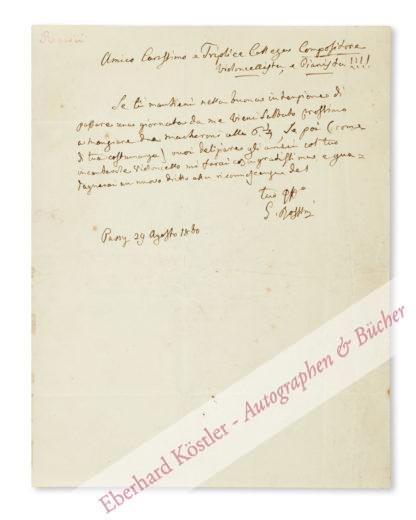 Amico Carissimo e Triplice Collega Compositore
Violoncellista, e Pianista !!!!
Se ti mantieni nella buona intenzione di
passare una giornata da me vieni Sabbato prossimo
a mangiare due maccheroni alle 6. ¼, Se poi (come
di tua costumanza) vuoi deliziare gli amici col tuo
Violoncello mi farai cosa gratissima e gua-
dagnerai un nuovo dritto alla riconoscenza del
tuo aff°
G. Rossini
Passy 29 Agosto 1860
Eberhard Köstler - Autographen & Bücher